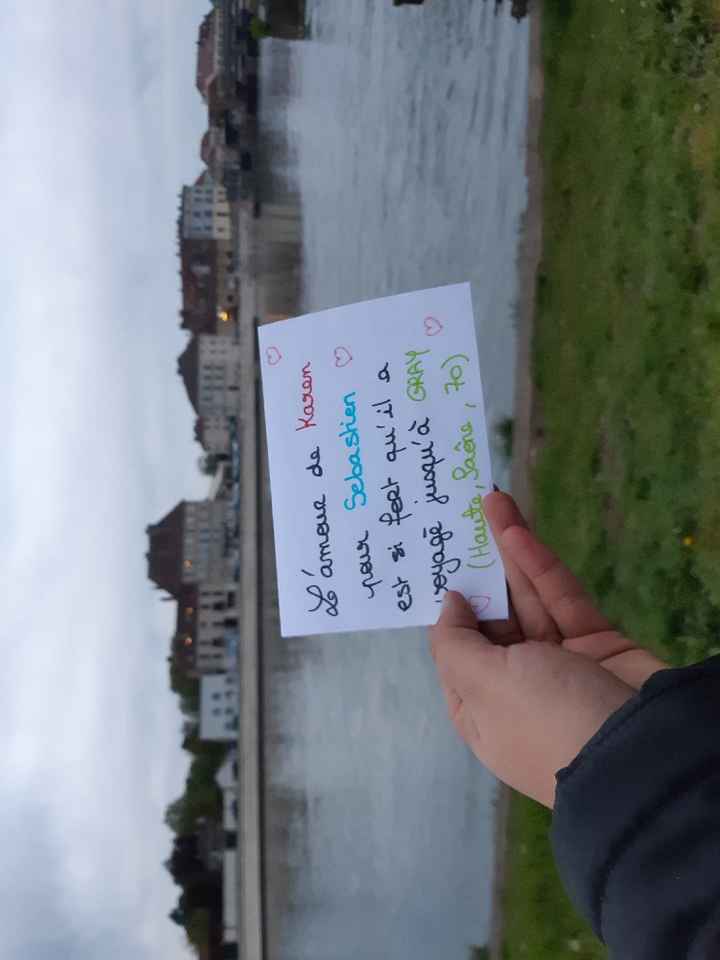 L'amour de Karen
pour Sebastien
est si fort qu'il a
voyagé jusqu'à GRAY
(Haute, Saône, 70)